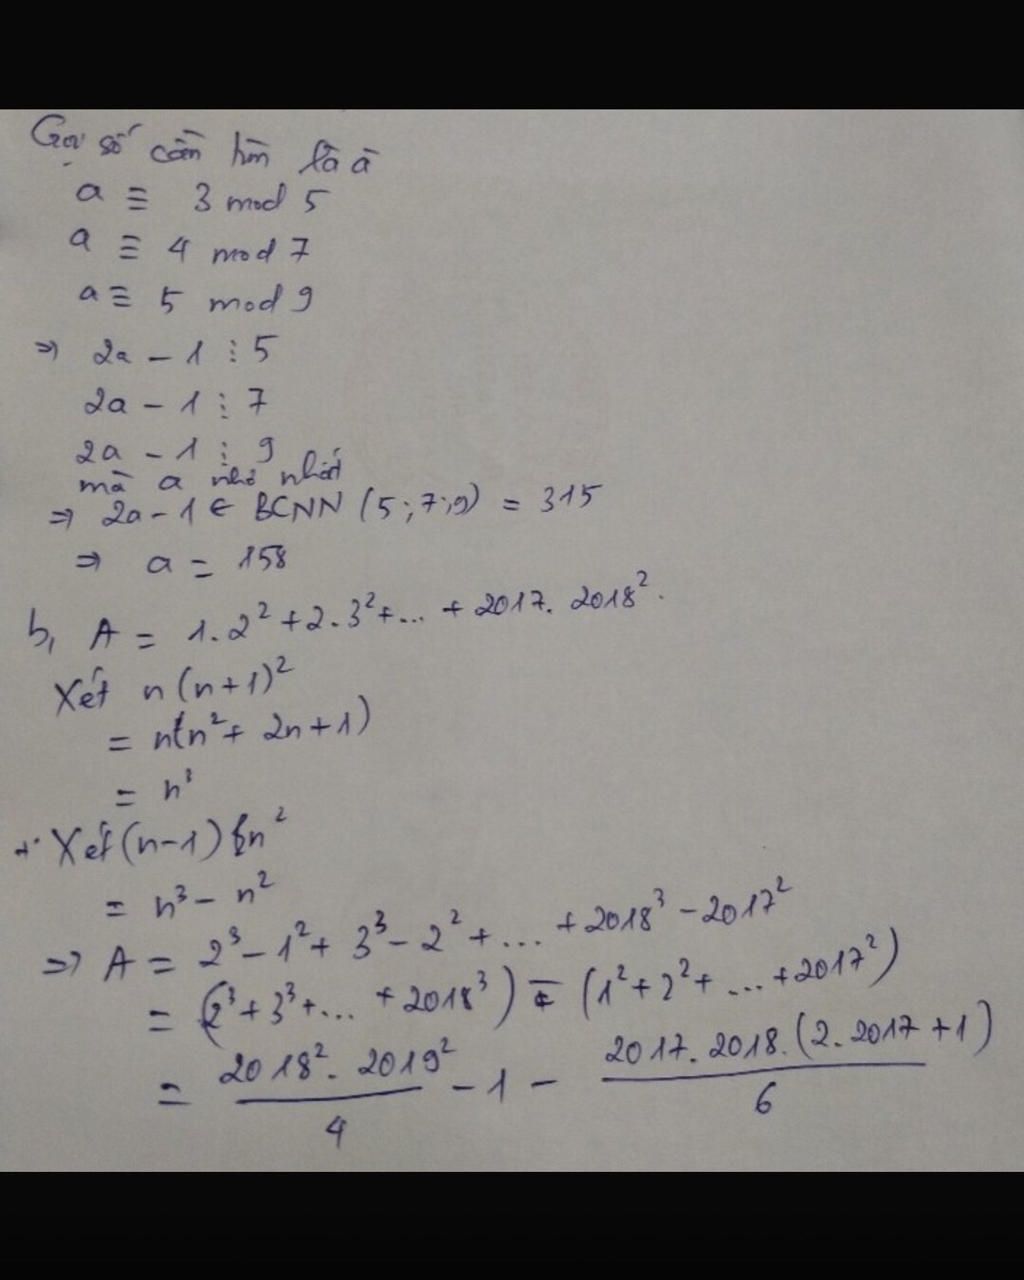 Gọi số cần tìm là a
a ≡ 3 mod 5
a ≡ 4 mod 7
a ≡ 5 mod 9
⇒ 2a - 1 ⋮ 5
2a - 1 ⋮ 7
2a - 1 ⋮ 9
mà a nhỏ nhất
⇒ 2a - 1 ∈ BCNN (5;7;9) = 315
⇒ a = 158
b, A = 1.2² + 2.3² + ... + 2017. 2018².
Xét n (n+1)²
= n(n² + 2n + 1)
= n³
+ Xét (n-1) n²
= n³ - n²
⇒ A = 2³ - 1² + 3³ - 2² + ... + 2018³ - 2017²
= (2³ + 3³ + ... + 2018³) - (1² + 2² + ... + 2017²)
= \frac{2018². 2019²}{4} - 1 - \frac{2017. 2018. (2. 2017 + 1)}{6}